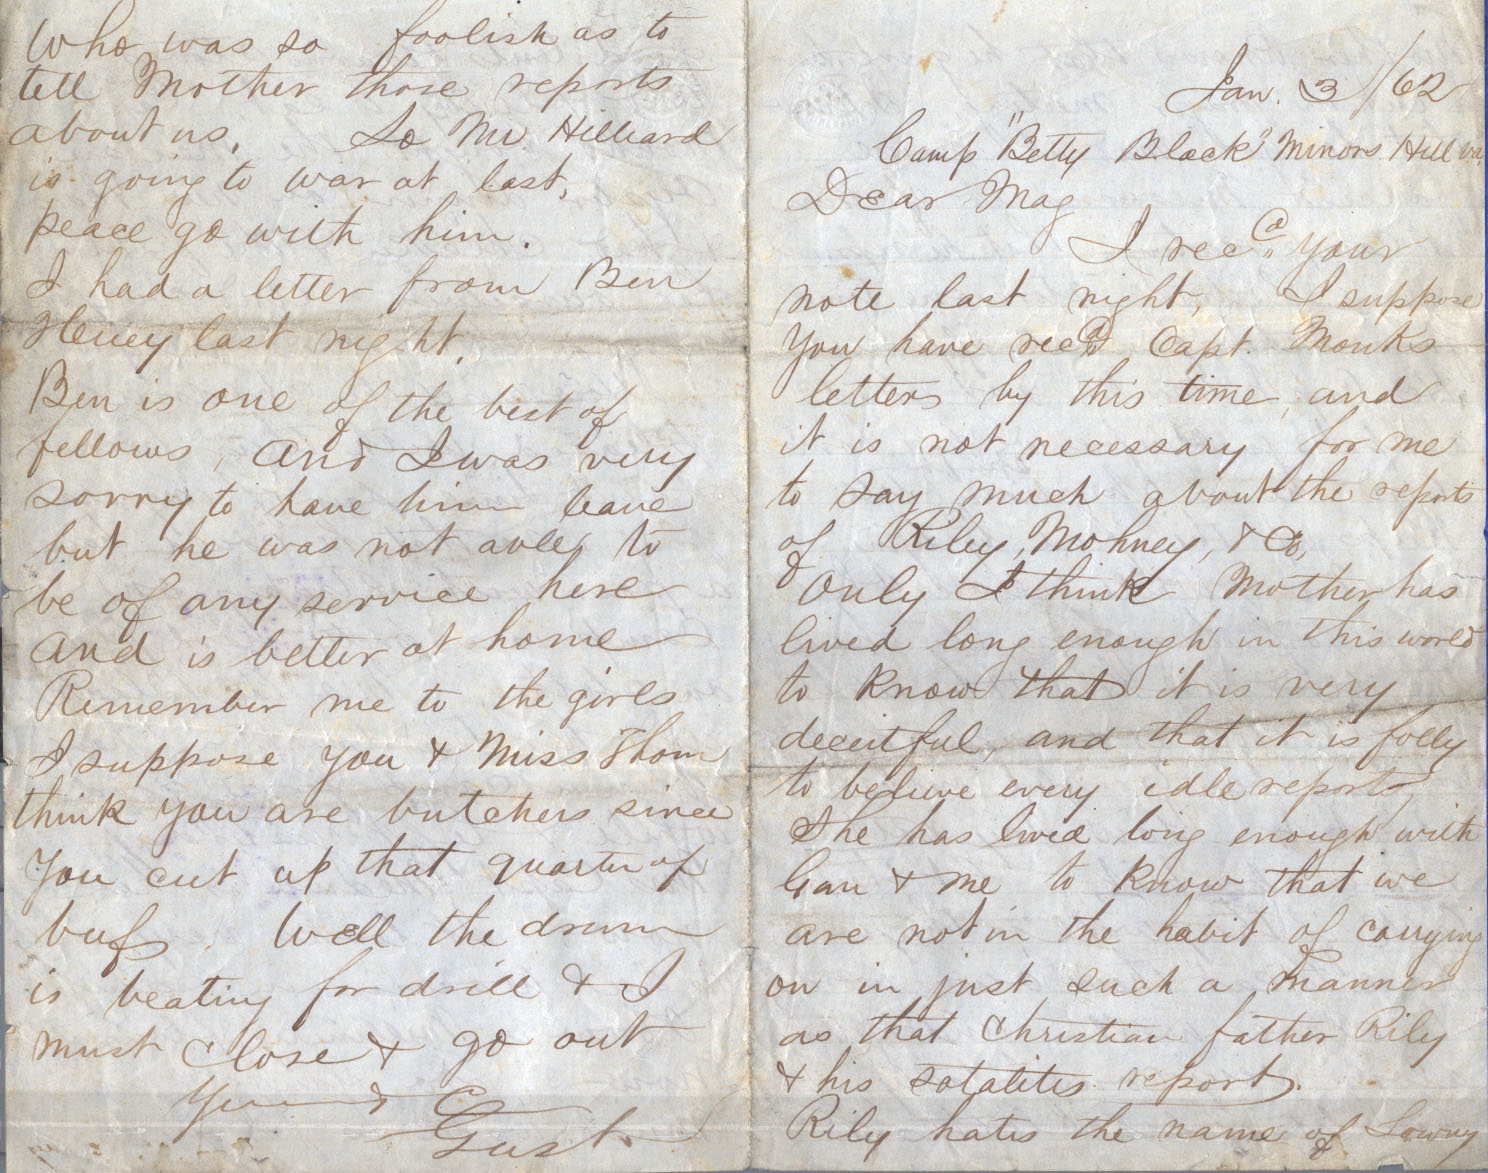 Jan. 3/62
Camp "Betty Black" Minors Hill Va.
Dear Mag
I recd. your
note last night, I suppose
you have recd Capt. Monks
letters by this time, and
it is not necessary for me
to say much about the reports
of Riley, Mohney, & Co,
only I think Mother has
lived long enough in this world
to know that it is very
deceitful, and that it is folly
to believe every idle report,
She has lived long enough with
& me to know that we
are not in the habit of carrying
on in just such a manner
as that Christian father Rily
& his satalites report.
Rily hates the name of Lowry
Who was so foolish as to
tell Mother those reports
about us. So Mr. Hilliard
is going to war at last,
peace go with him.
I had a letter from Ben
last night.
Ben is one of the best of
fellows, and I was very
sorry to have him leave
but he was not able to
be of any service here
and is better at home
Remember me to the girls
I suppose you & Miss Thom
think you are butchers since
you cut up that quarter of
Well the drum
is beating for drill & I
must close & go out
Gust.